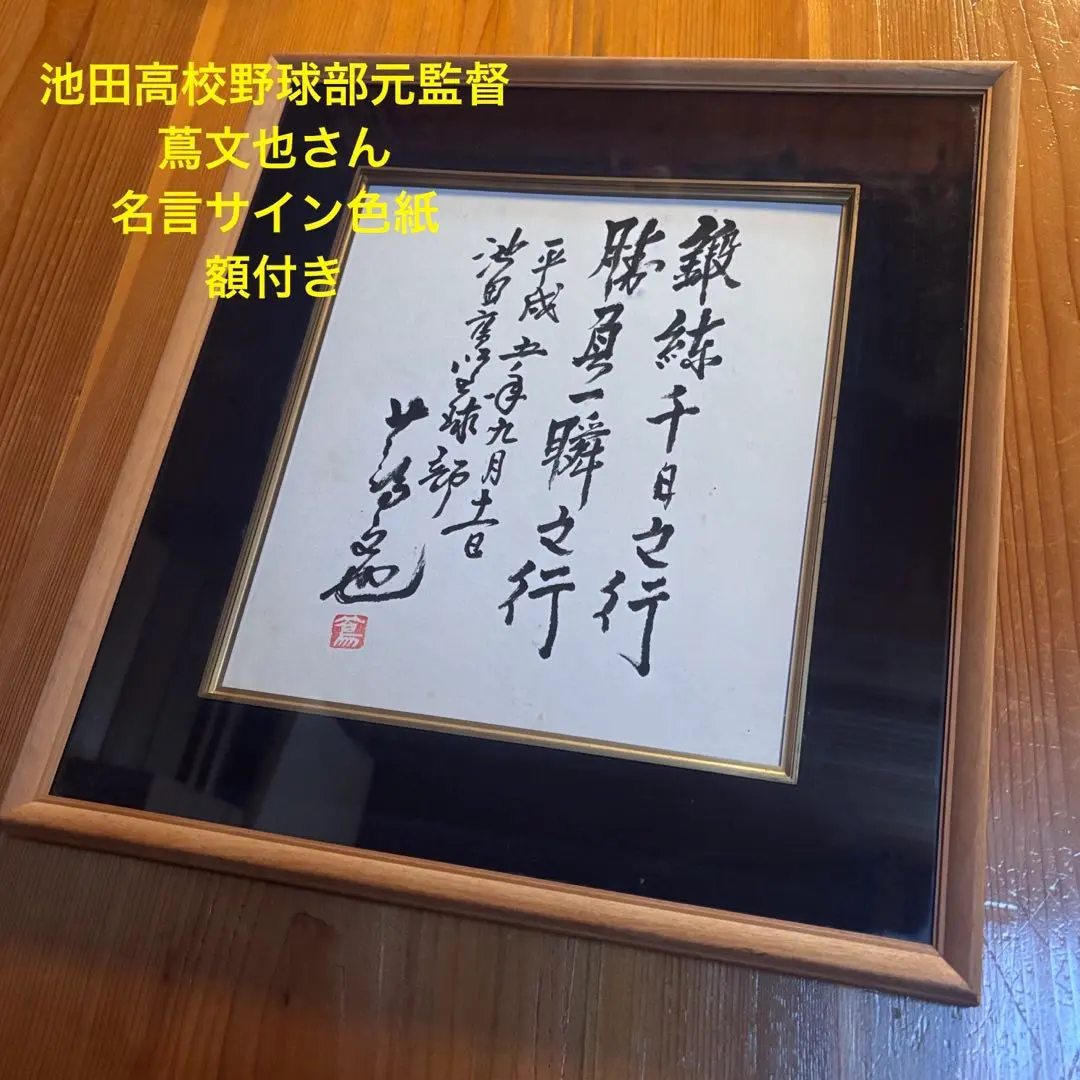 池田高校野球部元監督
蔦文也さん
名言サイン色紙
額付き
鍛練千日之行
勝負一瞬之行
平成五年九月十一日
池田高校野球部
蔦文也
蔦